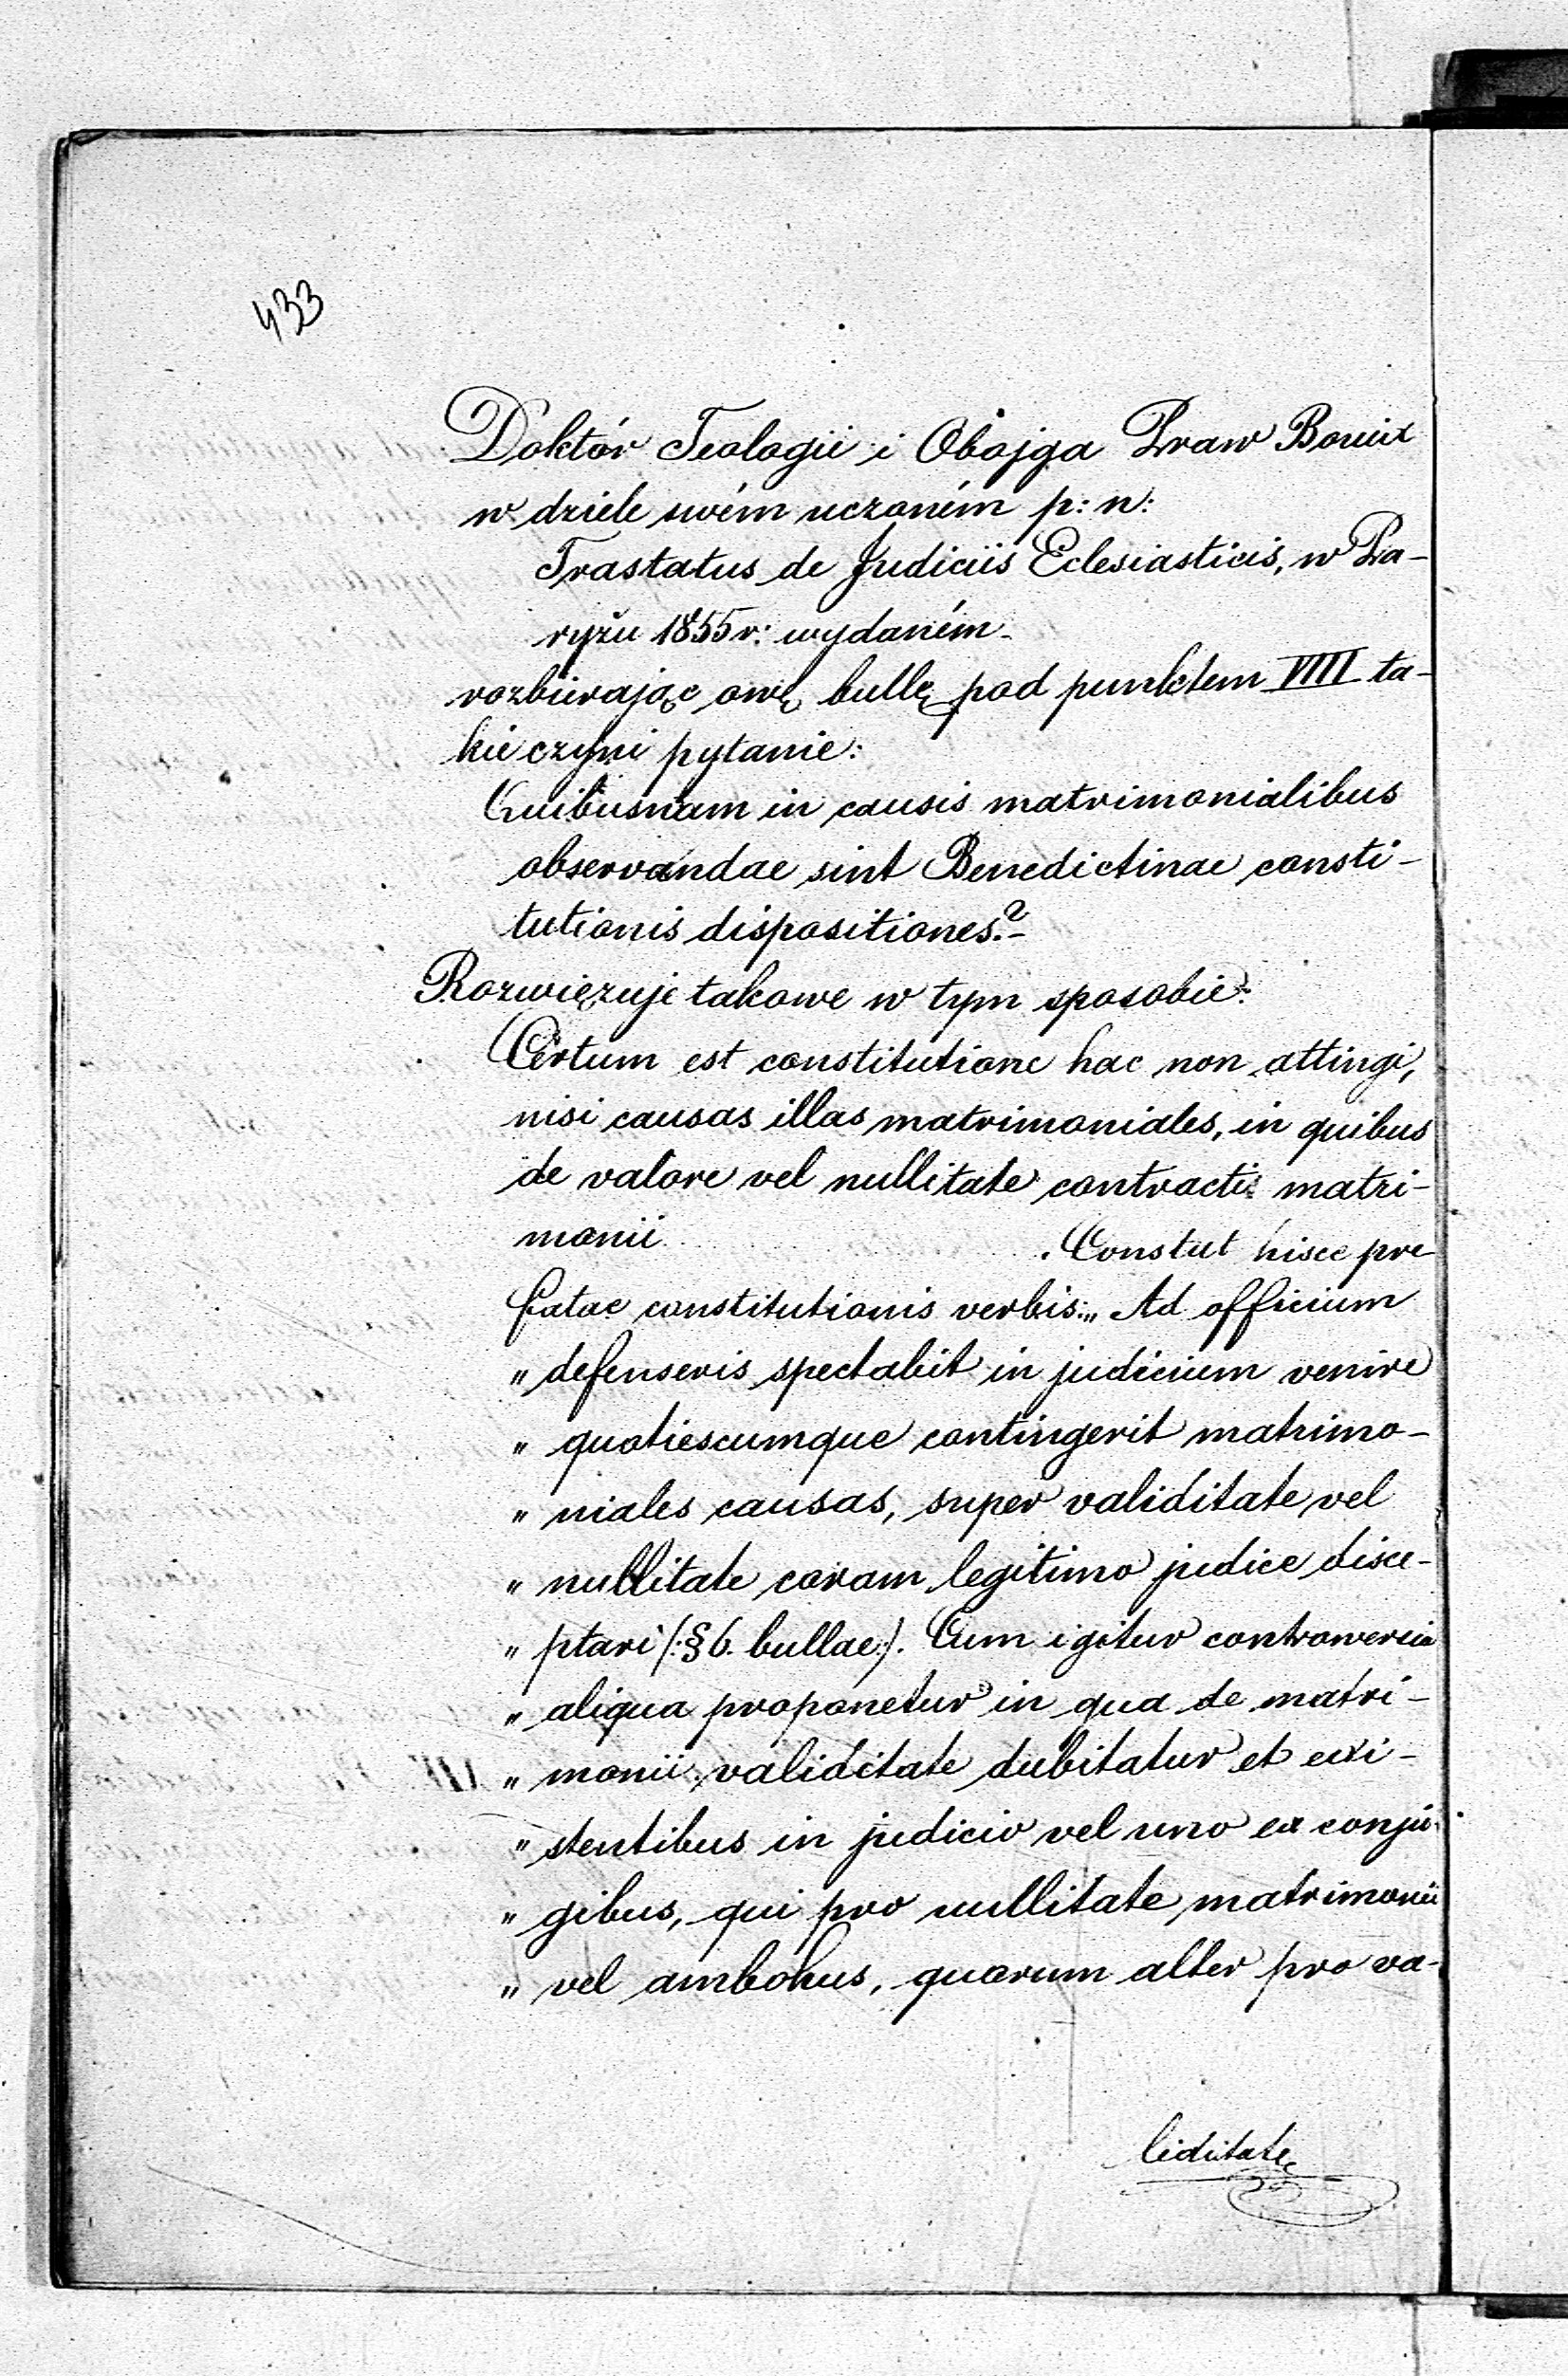 433
Doktór Teologii i Obojga Praw Bouix
w dziele swém uczoném p: n:
Trastatus de Judiciis Eclesiasticis, w Pa-
ryżu 1855 r: wydaném-
rozbierając owę bullę pod punktem VIII ta-
kie czyni pytanie:
Quibusnam in causis matrimonialibus
observandae sint Benedictinae consti-
tutionis dispositiones?-
Rozwięzuje takowe w tym sposobie:
Certum est constitutione hac non attingi,
nisi causas illas matrimoniales, in quibus
de valore vel nullitate contracti matri-
monii . Constut hisce pre
fatae constitutionis verbis: „ Ad officium
„ defenseris spectabit in judicium venire
„ quotiescumque contingerit matrimo-
„ niales causas, super validitate vel
„ nullitate coram legitimo judice disce-
„ ptari /: § 6. bullae :/. Cum igitur controwercia
„ aliqua proponetur in qua de matri-
„ monii validitate dubitatur et exi-
„ stentibus in judicio vel uno ex conju-
„ gibus, qui pro nullitate matrimonii
„ vel ambobus, quorum alter pro va-
liditate